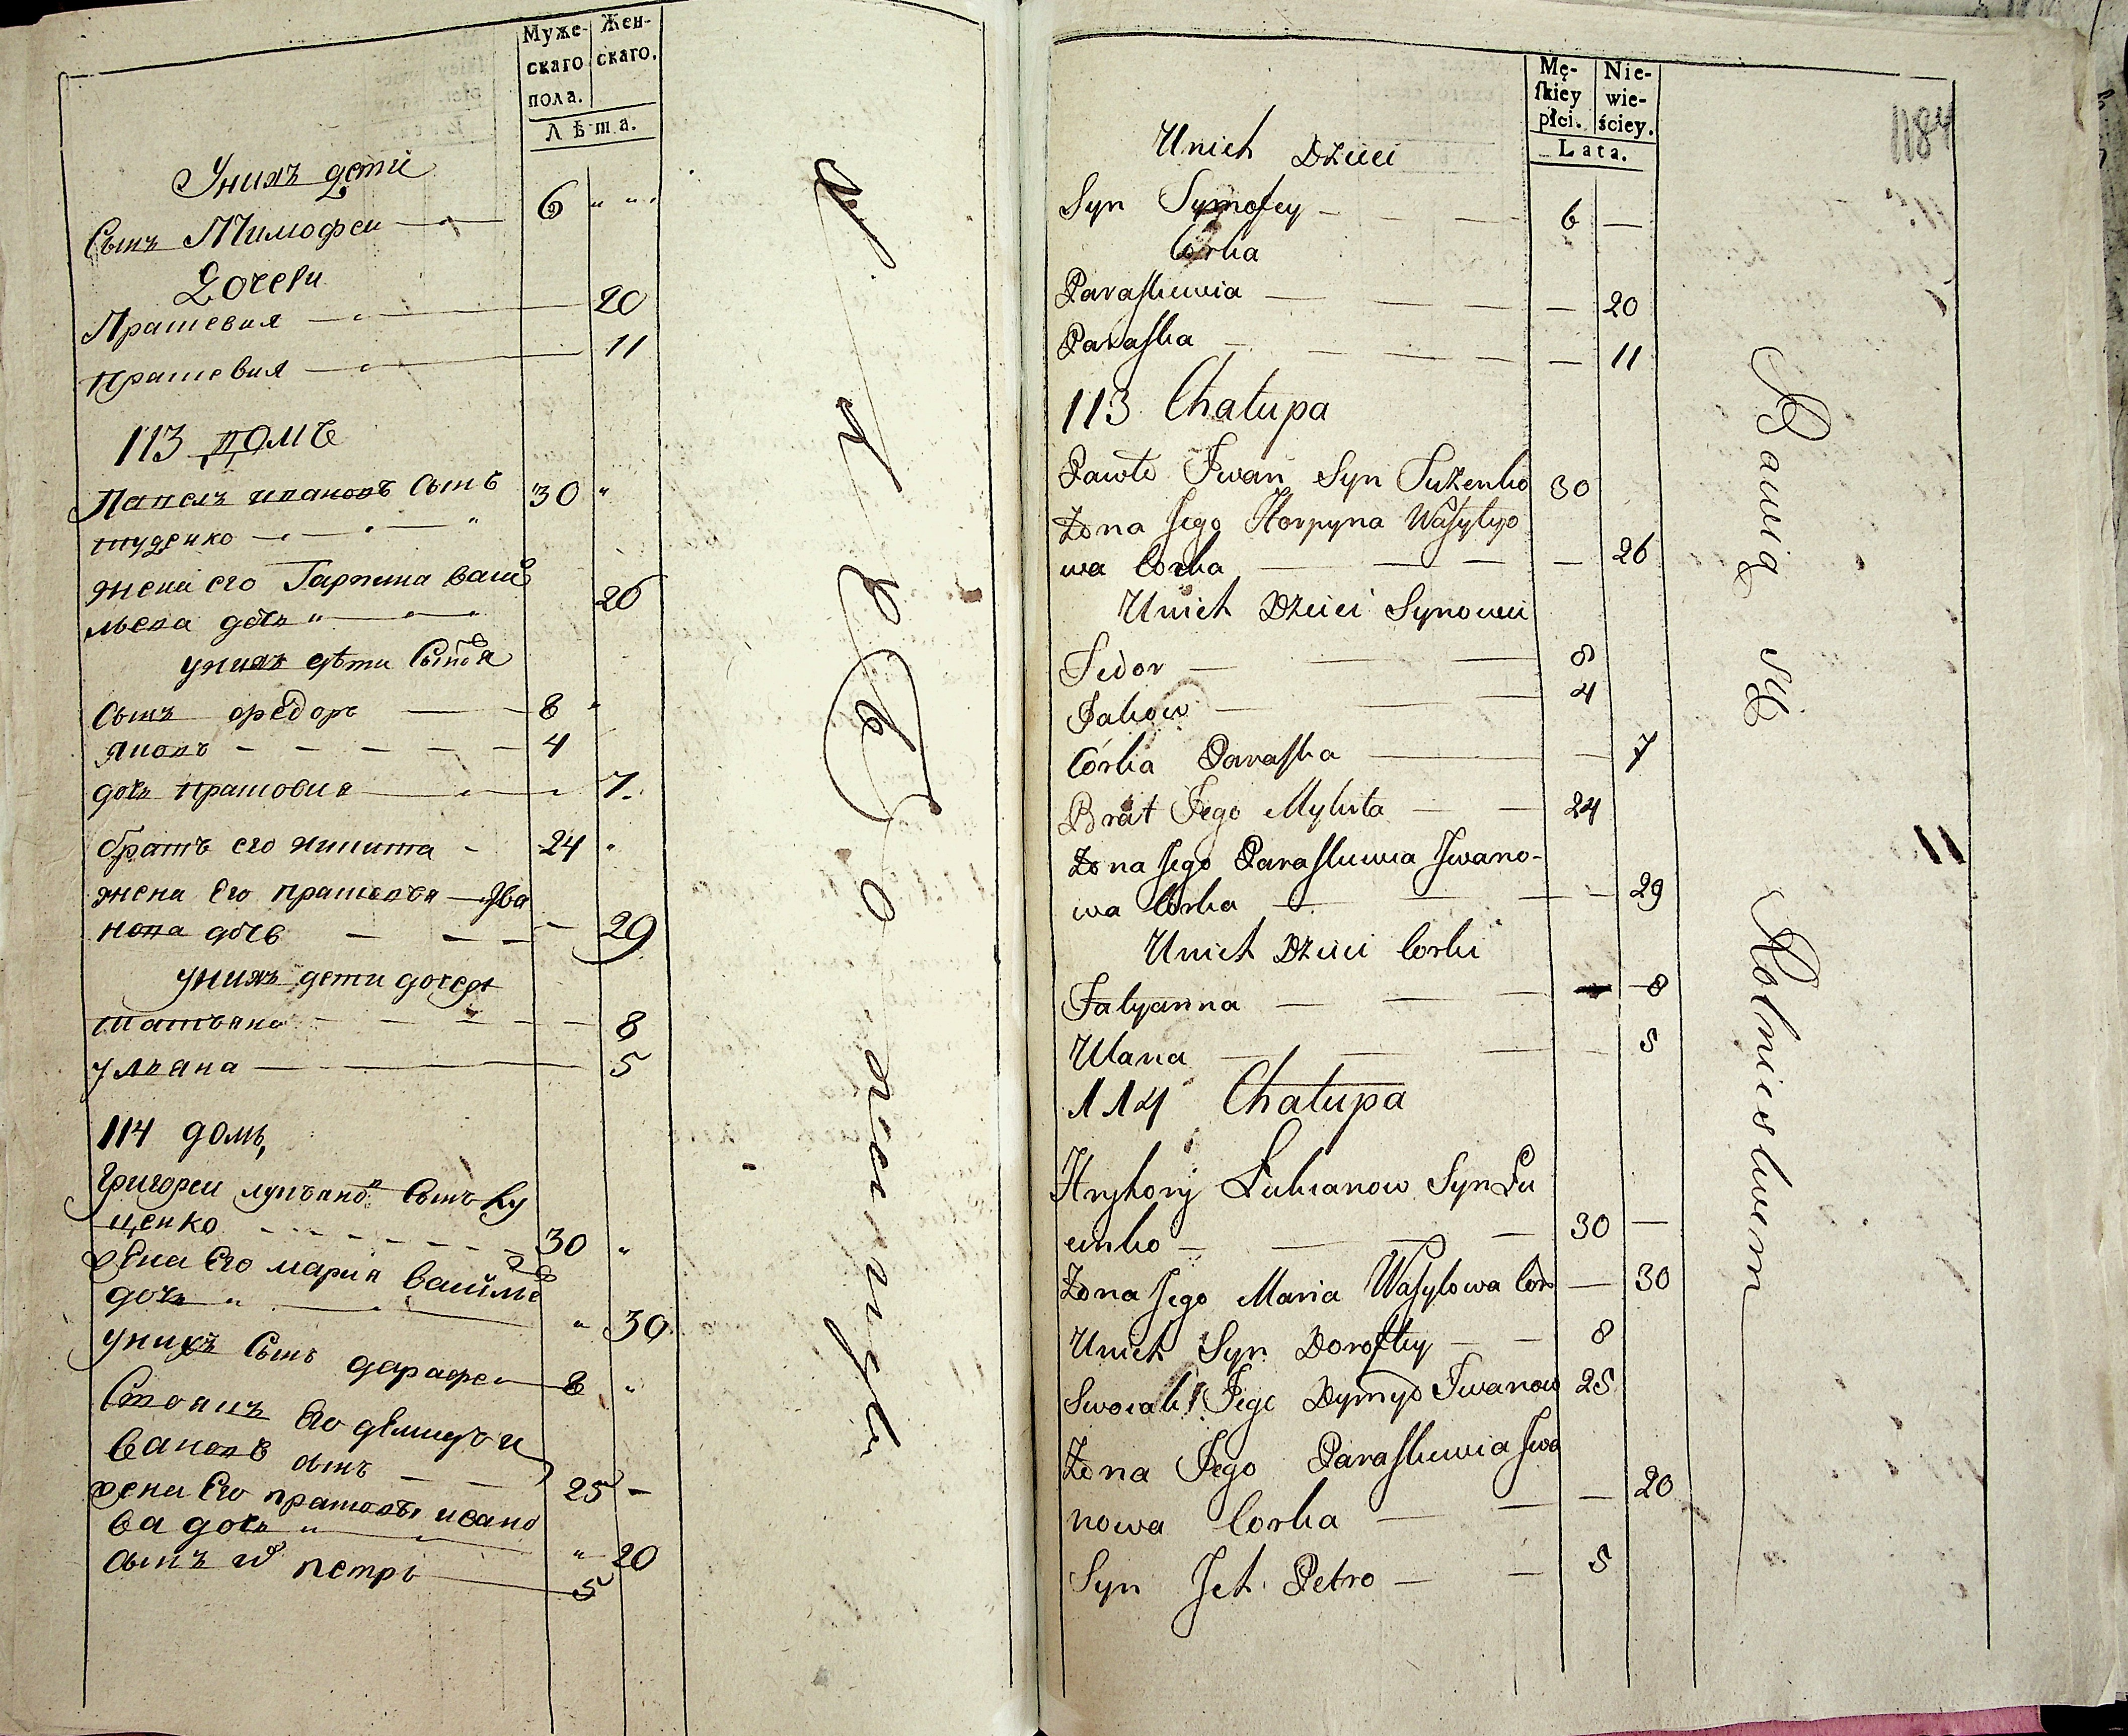 Муже-
скаго
пола.
Жен-
скаго.
Лѣта.
Унихъ дети
Сынъ Тимофеи 6
Дочери
Прашевия 20
прашевия 11
113 домъ
Павелъ ивановъ Сынъ 30
жена его Гарпина васи
льева дочь 26
унихъ дѣти Сыновя
Сынъ федоръ 8
Яковъ 4
дочь прасовия 7
братъ его никита 24
жена Его прасковя Ива
нова дочь 29
унихъ дети дочери
татъяна 8
улъяна 5
114 домъ
Григореи лукъянов Сынъ Лу
ценко 30
жена Его мария василе
дочь 30
унихъ Сынъ дарафеи 8
Своякъ Его демидъ и
вановъ сынъ 25
жена Его прасковя ивано
ва дочь 20
сынъ их петръ 5
Mę-
ſkiey
płci.
Nie-
wie-
ściey.
Lata.
1184
Unich Dzieci
Syn Tymofey 6
Corka
Paraſkiewia 20
Paraſka 11
113 Chałupa
Pawło Jwan Syn Tuzenko 30
Zona Jego Horpyna Waſylyo
wa Corka 26
Unich Dzieci Synowie
Fedor 8
Jakow 4
Córka Paraſka 7
Brat Jego Mykita 24
Zona Jego Paraſkiewia Jwano-
wa Corka 29
Unich Dzieci Corki
Tatyanna 8
Ulana 5
114 Chałupa
Hryhory Łukianow Syn Łu
cenko 30
Zona Jego Maria Waſylowa Cor 30
Unich Syn Dorofiey 8
Swoiak Jego Dymyd Jwanow 25
Zona Jego Paraſkiewia Jwa
nowa Corka 20
Syn Jch Petro 5
Bawią się
Rolnictwem
11